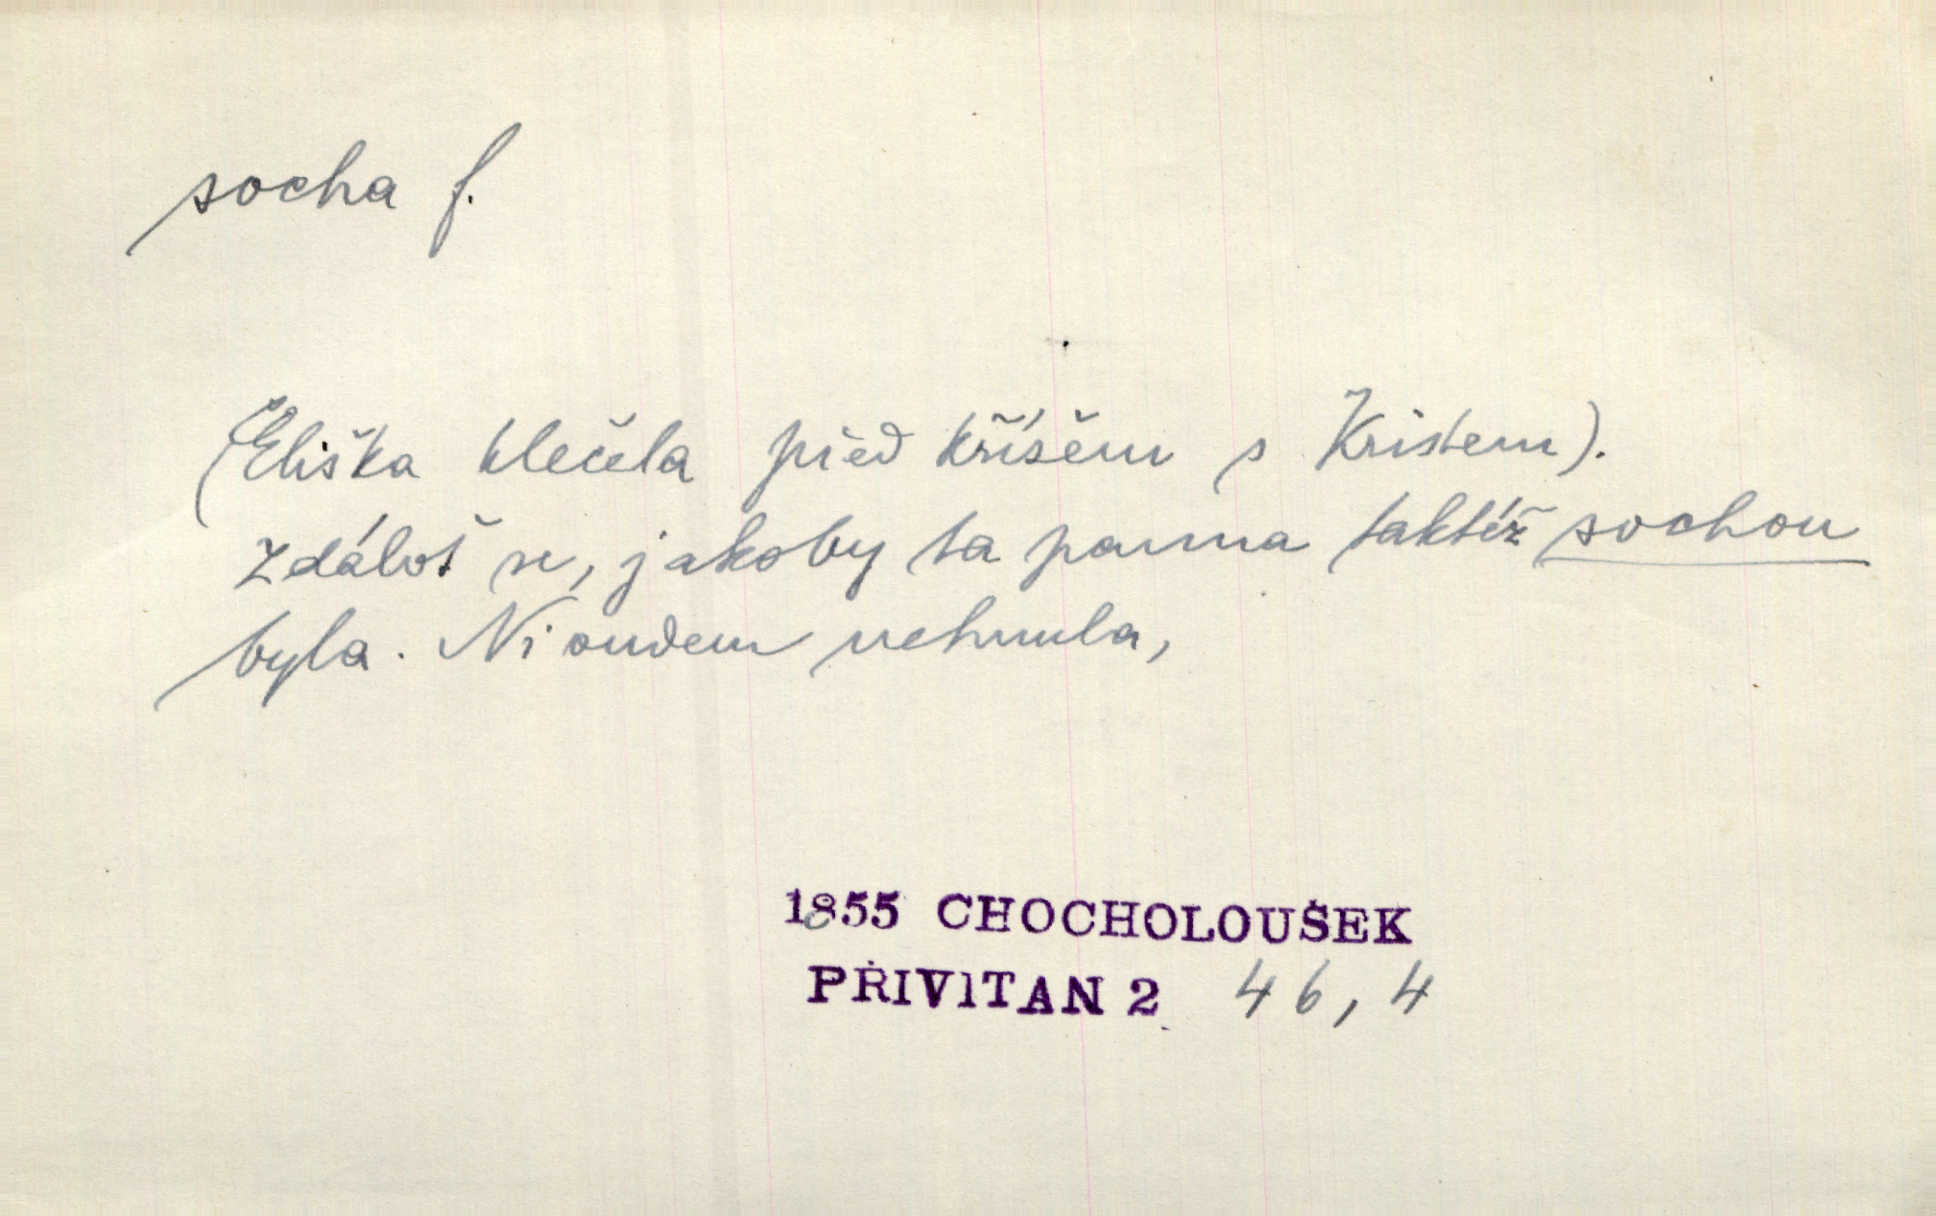 socha f.
(Eliška klečela před křížem s Kristem).
Zdáloť se, jakoby ta panna taktéž sochou
byla. Ni oudem nehnula,
1855 CHOCHOLOUŠEK
PŘIVITAN 2 46, 4